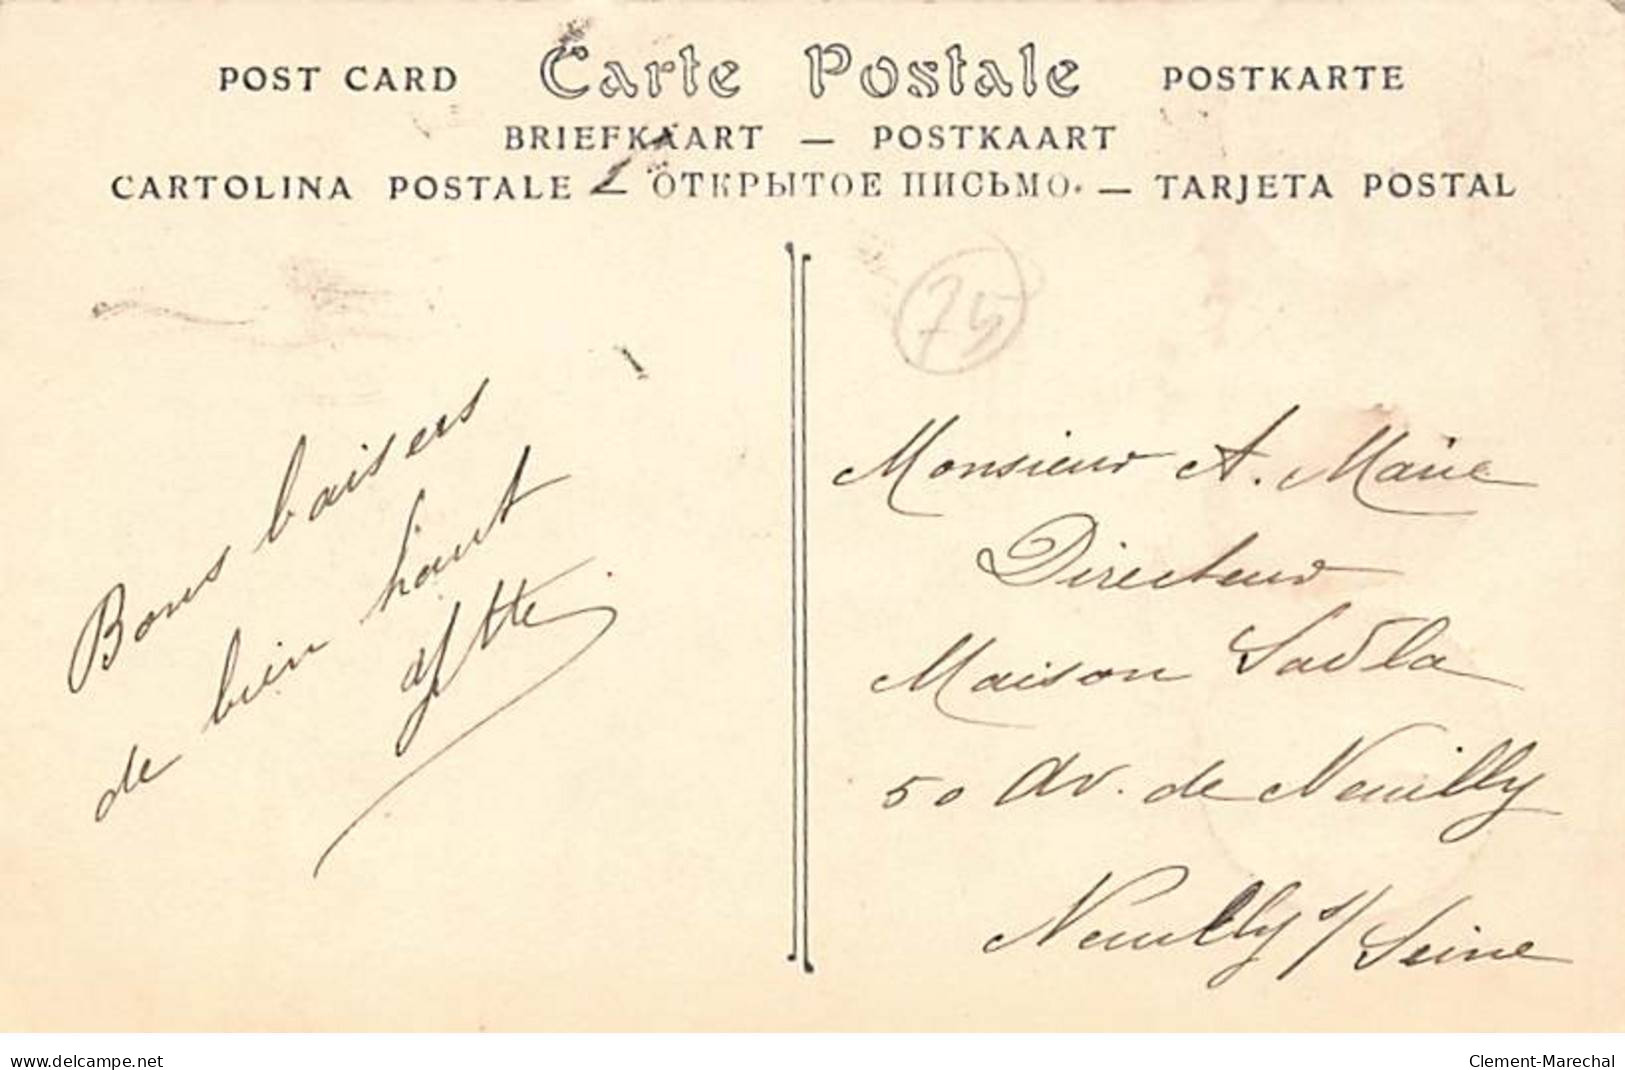 POST CARD Carte Postale POSTKARTE
BRIEFKAART — POSTKAART
CARTOLINA POSTALE — ОТКРЫТОЕ ПИСЬМО. — TARJETA POSTAL
75
Bons baisers
de bien haut
Monsieur A. Marie
Directeur
Maison
50 Av. de Neuilly
Neuilly s/ Seine
www.delcampe.net
Clement-Marechal